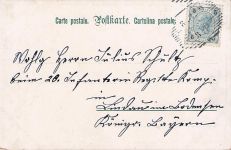 Carte postale. Postkarte. Cartolina postale.
Wohlg. Herrn Julius Schultz
beim 20. Infanterie Regmte Komp.
in
Lindau im Bodensee
Königr. Bayern